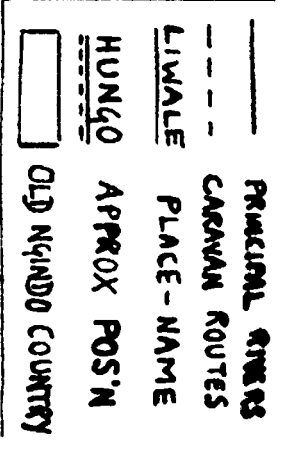 PRINCIPAL RIVERS
CARAVAN ROUTES
LIWALE PLACE-NAME
HUNGO APPROX POS'N
OLD NGINDO COUNTRY